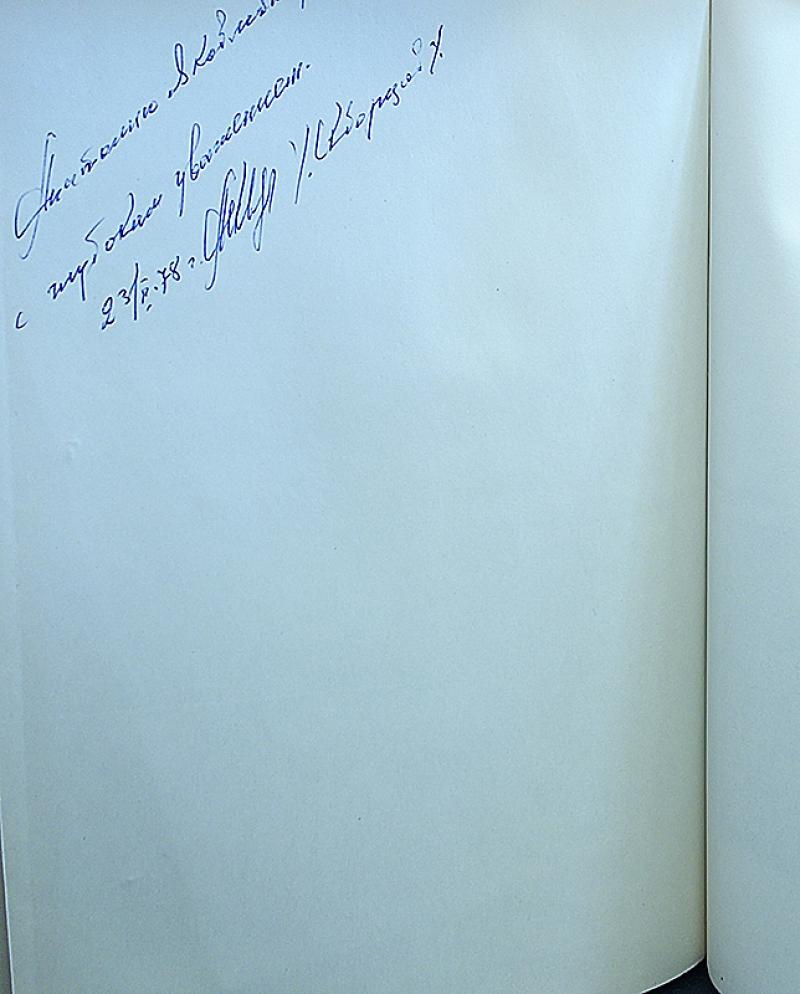 Анатолию Яковлеви
с глубоким уважением.
23/II.78 г. /Скворцов/